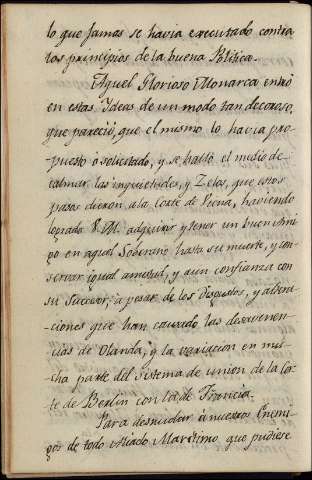 lo que Jamas se havia executado contra
los principios de la buena Politica.
Aquel Glorioso Monarca entró
en estas Ideas de un modo tan decoroso,
que pareció, que el mismo lo havia pro-
puesto o solicitado, y se halló el medio de
calmar las inquietudes, y Zelos, que estos
pasos dieron a la Corte de Viena, haviendo
logrado V. M. adquirir y tener un buen Ami-
go en aquel Soberano hasta su muerte, y con-
servar igual amistad, y aun confianza con
su Sucesor, a pesar de los Disgustos, y altera-
ciones que han causado las desavenen-
cias de Olanda, y la variacion en mu-
cha parte del Sistema de union de la Cor-
te de Berlin con la de Francia.
Para desnudar à nuestros Enemi-
gos de todo Aliado Maritimo que pudiese